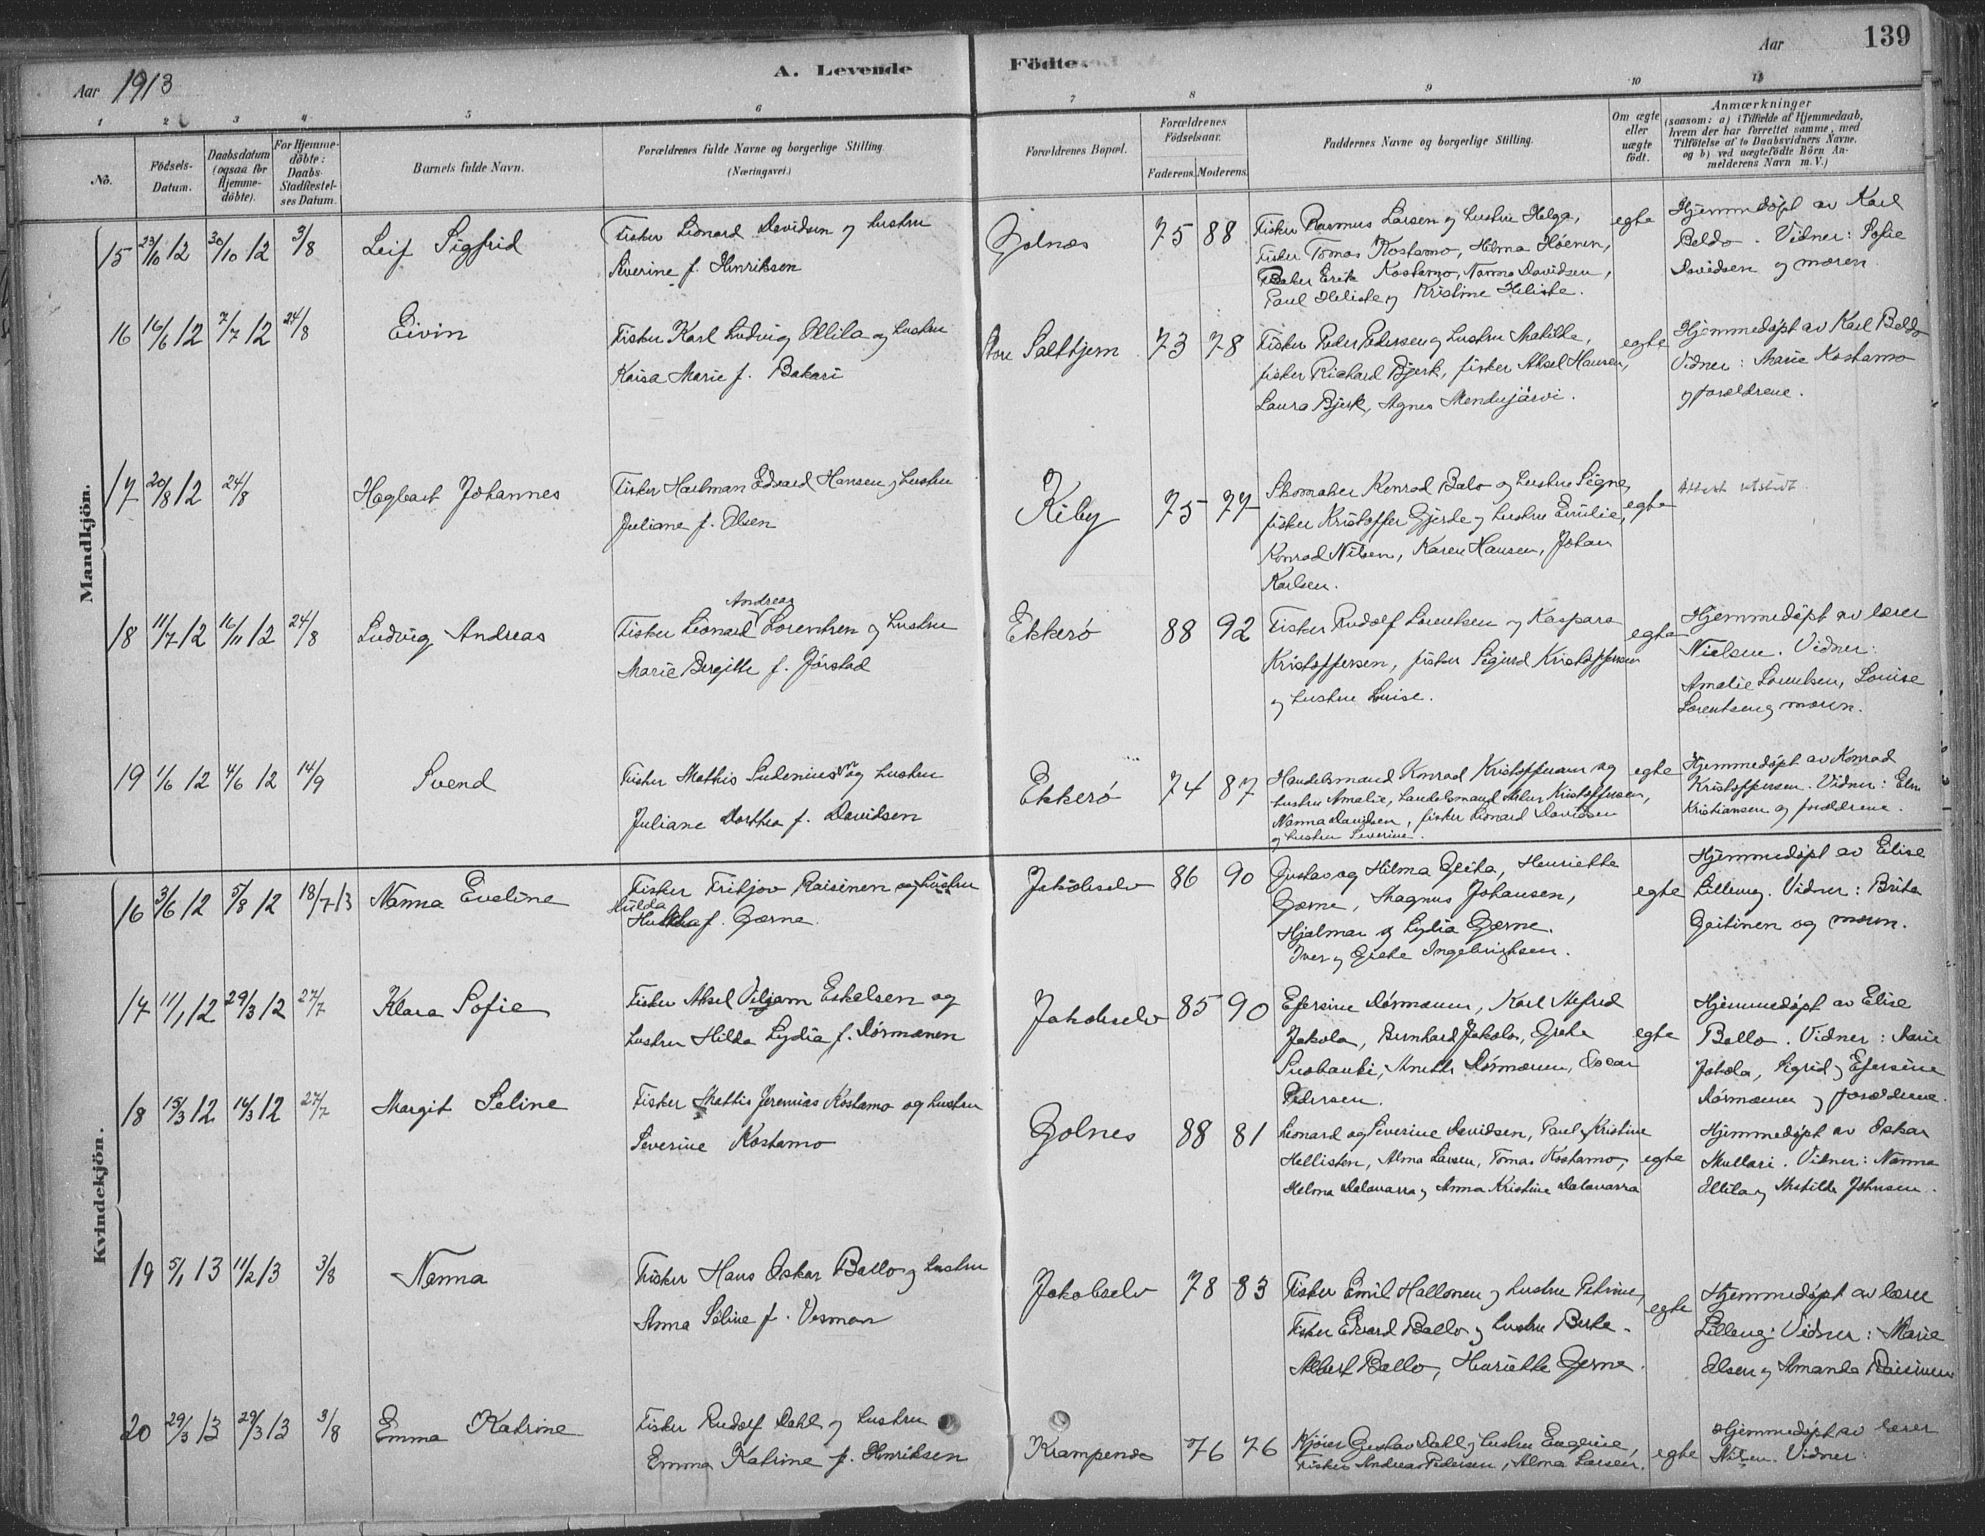 139
Aar 1913
A. Levende
Födte.
Aar
1 2 3 4 5 6 7 8 9 10 11
No.
Födsels-
Datum.
Daabsdatum
(ogsaa for
Hjemme-
döbte).
For Hjemme-
döbte:
Daabs-
Stadfæstel-
ses Datum.
Barnets fulde Navn.
Forældrenes fulde Navne og borgerlige Stilling
(Næringsvei.)
Forældrenes Bopæl.
Forældrenes
Födselsaar.
Faderens. Moderens.
Faddernes Navne og borgerlige Stilling.
Om ægte
eller
uægte
födt.
Anmærkninger
(saasom: a) i Tilfælde af Hjemmedaab,
hvem der har forrettet samme, med
Tilföielse af to Daabsvidners Navne.
og b) ved uægtefödte Börn An-
melderens Navn m. V.)
Mandkjön.
15 23/10 12 30/10 12 3/8 Leif Sigfrid
Fisker Leonard Davidsen og hustru
Severine f. Henriksen
Golnæs 75 88
Fisker Rasmus Larsen og hustru Helga,
Fisker Tomas Kostamo, Hilma
Fisker Erik Kostamo, Nanna Davidsen,
Paul Heliste og Kristine Heliste.
egte
Hjemmedøpt av Karl
Beldo. Vidner: Sofie
Davidsen og moren.
16 16/6 12 7/7 12 24/8 Eivin
Fisker Karl Ludvig Ollila og hustru
Kaisa Marie f. Bakari
Store Saltbjern 73 78
Fisker Peder Pedersen og hustru Matilde,
fisker Richard Bjørk, fisker Aksel Hansen,
Laura Bjørk, Agnes Mendujärvi.
egte
Hjemmedøpt av Karl Beldo
Vidner: Marie Kostamo
og forældrene.
17 20/8 12 24/8 Hagbart Johannes
Fisker Hartman Edvard Hansen og hustru
Juliane f. Olsen
Kiby 75 77
Skomaker Konrad Balo og hustru Signe,
fisker Kristoffer Gjerde og hustru Emilie,
Konrad Nilsen, Karen Hansen, Johan
Karlsen.
egte
Attest utstedt.
18 11/7 12 16/11 12 24/8 Ludvig Andreas
Andreas
Fisker Leonard Lorentsen og hustru
Marie Bergitte f. Jørstad
Ekkerø 88 92
Fisker Rudolf Lorentsen og Kaspara
Kristoffersen, fisker Sigurd Kristoffersen
og hustru Louise.
egte
Hjemmedøpt av lærer
Nielsen. Vidner:
Amalie Lorentsen, Louise
Lorentsen og moren.
19 1/6 12 4/6 12 14/9 Svend
Fisker Mathis Sudenius og hustru
Juliane Dorthea f. Davidsen
Ekkerø 74 87
Handelsmand Konrad Kristoffersen og
hustru Amalie, handelsmand Kristoffersen,
Nanna Davidsen, fisker Leonard Davidsen
og hustru Severine.
egte
Hjemmedøpt av Konrad
Kristoffersen. Vidner:
Kristiansen og forældrene.
Kvindekjön.
16 3/6 12 5/8 12 18/7 13 Nanna Eveline
Fisker Fritjov Raisinen og hustru
Hulda f. Gærne.
Jakobselv 86 90
Gustav og Hilma Geita, Henriette
Gærne, Magnus Johansen,
Hjalmar og Lydia Gærne.
Iver og Grete Ingebrigtsen.
egte
Hjemmedøpt av Elise
Lilleeng. Vidner: Brita
Geitinen og moren.
17 11/1 12 29/3 12 27/7 Klara Sofie
Fisker Aksel Viljam Eskelsen og
hustru Hilda Lydia f. Dørmænen
Jakobselv 85 90
Efersine Dørmænen, Karl Alfrid
Jakola, Bernhard Jakola, Grete
Suobanki, Anette Dørmænen, Oscar
Pedersen.
egte
Hjemmedøpt av Elise
Ballo. Vidner: Marie
Jakola, Sigrid og Efersine
Dørmænen og forældrene.
18 15/3 12 16/3 12 27/7 Margit Seline
Fisker Mattis Jeremias Kostamo og hustru
Severine Kostamo
Golnes 88 81
Leonard og Severine Davidsen, Paul og Kristine
Hellisten, Alma Larsen, Tomas Kostamo,
Helma Dalavarra og Anna Kristine Dalavarra
egte
Hjemmedøpt av Oskar
Mullari. Vidner: Nanna
Ollila og Matilde Johnsen.
19 5/1 13 11/2 13 3/8 Nanna
Fisker Hans Oskar Ballo og hustru
Anna Seline f. Vesman
Jakobselv 78 83
Fisker Emil Hallonen og hustru Petrine,
Fisker Edvard Ballo og hustru Berte.
Albert Ballo, Henriette Gerne.
egte
Hjemmedøpt av lærer
Lilleeng: Vidner: Marie
Olsen og Amanda Raisinen
20 29/3 13 29/3 13 3/8 Emma Katrine
Fisker Rudolf Dahl og hustru
Emma Katrine f. Henriksen
Krampenæs 76 76
Kjører Gustav Dahl og hustru Eugenie,
Fisker Andreas Pedersen, Alma Larsen.
egte
Hjemmedøpt av lærer
Nilsen. Vidner: